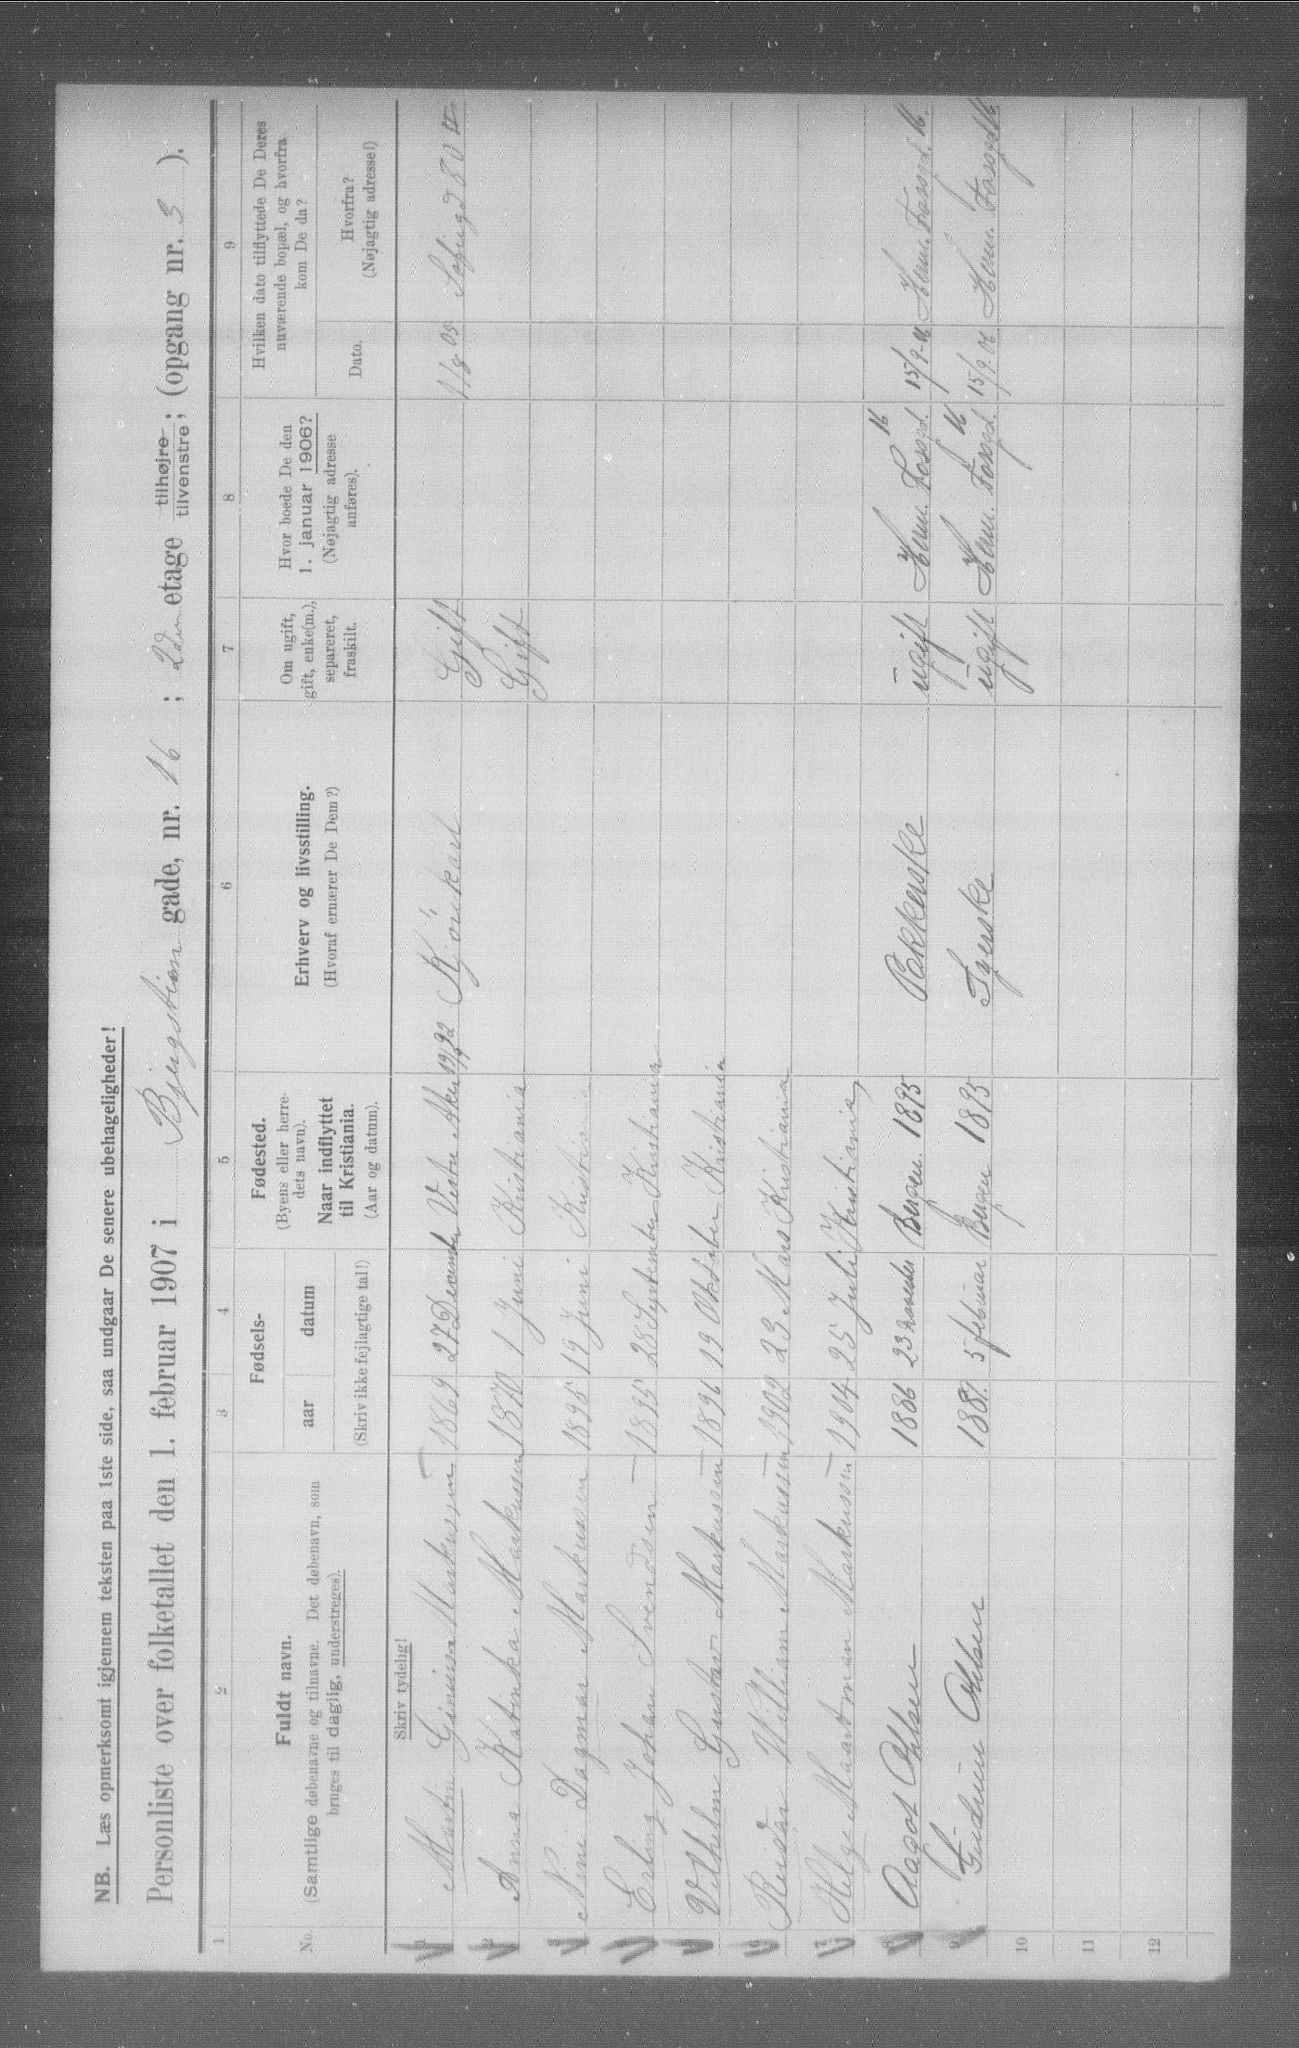 NB. Læs opmerksomt igjennem teksten paa 1ste side, saa undgaar De senere ubehageligheder!
Personliste over folketallet den 1. februar 1907 i gade, nr. 16 ; 2den etage tilhøjre tilvenstre ; (opgang nr. 3 ).
1 2 3 4 5 6 7 8 9
No.
Fuldt navn.
(Samtlige døbenavne og tilnavne. Det døbenavn, som
bruges til daglig, understreges).
Fødsels-
aar datum
(Skriv ikke fejlagtige tal!)
Fødested.
(Byens eller herre-
dets navn).
Naar indflyttet
til Kristiania.
(Aar og datum).
Erhverv og livsstilling.
(Hvoraf ernærer De Dem?)
Om ugift,
gift, enke(m.),
separeret,
fraskilt.
Hvor boede De den
1. januar 1906?
(Nøjagtig adresse
anføres).
Hvilken dato tilflyttede De Deres
nuværende bopæl, og hvorfra
kom De da?
Dato.
Hvorfra?
(Nøjagtig adresse!)
Skriv tydelig!
1 Martin Markussen 1869 27 December Vestre Aker Gift
2 Anna Katinka Markussen 1870 1 Juni Kristiania Gift
3 Dagmar Markussen 1895 19 Juni Kristiania
4 Erling Johan Svendsen 1895 28 September Kristiania
5 Vilhelm Gustav Markussen 1896 19 Oktober Kristiania
6 Reidar William Markussen 1902 23 Mars Kristiania
7 Helge Markussen 1904 25 Juli Kristiania
8 Aagot Ohlsen 1886 23 november Bergen 1895 ugift 16 15/9-06 16.
9 Gudrun Ohlsen 5 februar Bergen 1895 ugift 16 15/9 06 16
10
11
12